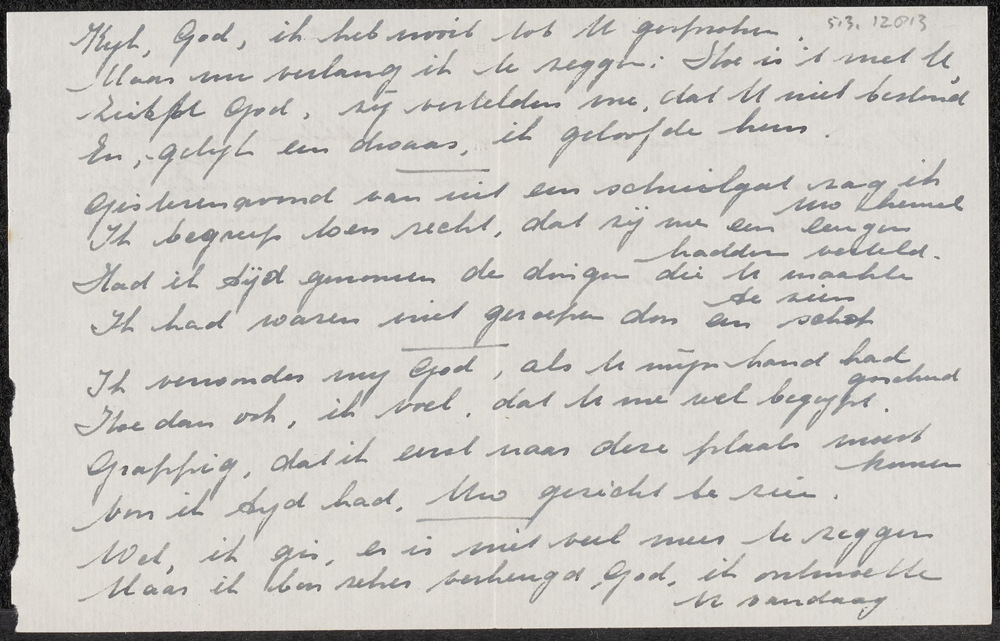 513.12013
Kyk, God, ik heb nooit tot U gesproken.
Maar nu verlang ik te zeggen: Hoe is 't met U,
God, zij vertelden me, dat U niet bestond
En, gelijk een dwaas, ik geloofde hen.
Gisterenavond van uit een schuilgat zag ik
Uw hemel
Ik begreep toen recht, dat zij me een leugen
hadden verteld.
Had ik tijd genomen de dingen die U maakte
te zien
Ik had waren niet geroepen dan een schot
Ik verwonder my God, als U mijn hand had
geschud
Hoe dan ook, ik voel, dat U me wel begrypt.
Grappig, dat ik eerst naar deze plaats moest
komen
Voor ik tyd had, Uw gezicht te zien.
Wel, ik gis, er is niet veel meer te zeggen
Maar ik ben zeker verheugd God, ik ontmoette
U vandaag